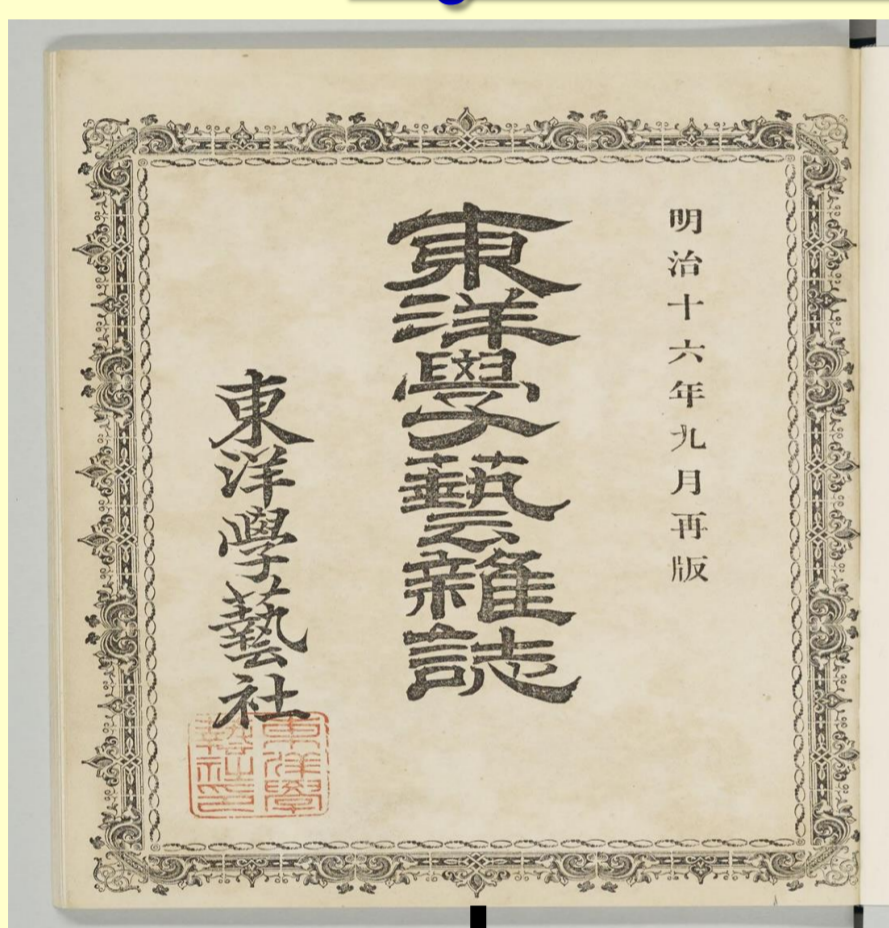 明治十六年九月再版
東洋學藝雜誌
東洋學藝社
東洋學
藝社印